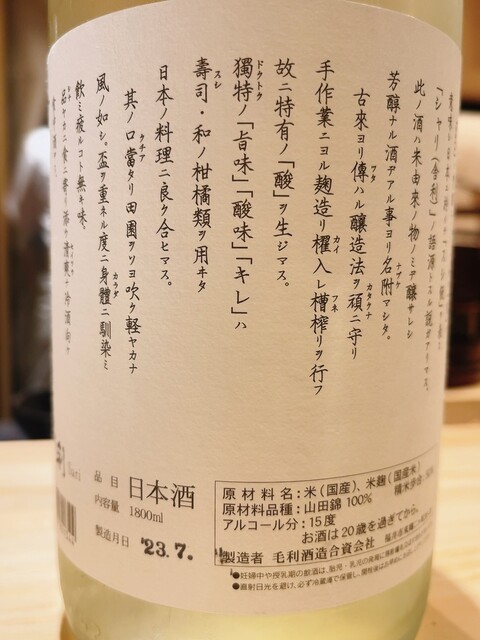 「シャリ(舎利)」ノ語源トスル説ガアリマス。
此ノ酒ハ米由來ノ物ノミデ醸サレシ
芳醇ナル酒デアル事ヨリ名附マシタ。
古來ヨリ傳ハル醸造法ヲ頑ニ守リ
手作業ニヨル麹造リ櫂入レ槽搾リヲ行フ
故ニ特有ノ「酸」ヲ生ジマス。
獨特ノ「旨味」「酸味」「キレ」ハ
壽司・和ノ柑橘類ヲ用ヰタ
日本ノ料理ニ良ク合ヒマス。
其ノ口當タリ田園ヲソヨ吹ク軽ヤカナ
風ノ如シ。盃ヲ重ネル度ニ身體ニ馴染ミ
飲ミ疲ルコト無キ味
品目 日本酒
内容量 1800ml
製造月日 '23.7.
原材料名:米(国産)、米麹(国産米)
原材料品種:山田錦100%
アルコール分:15度
お酒は20歳を過ぎてから。
製造者 毛利酒造合資会社